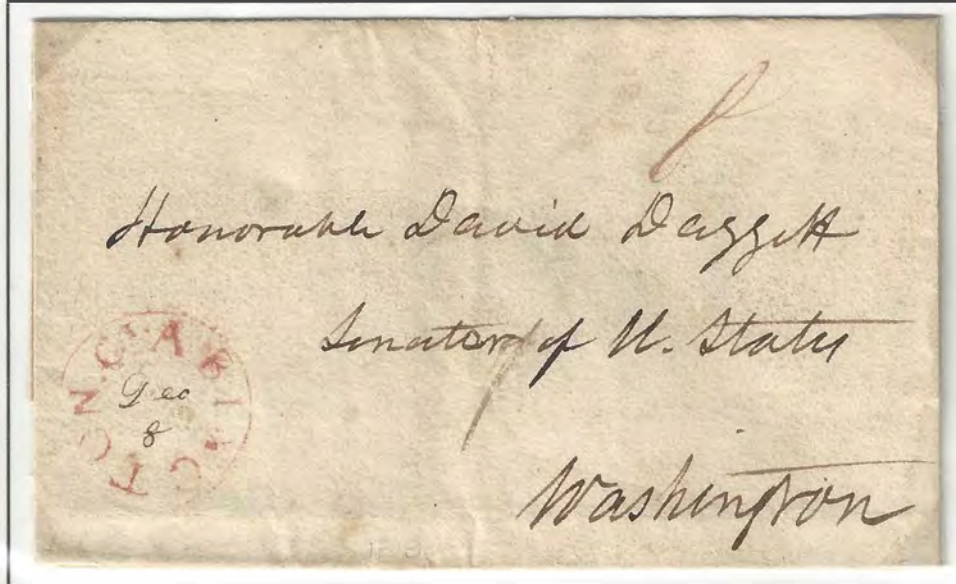 Honorable David Daggett
Senator of U. States
Washington
ABINGTON C
Dec
8